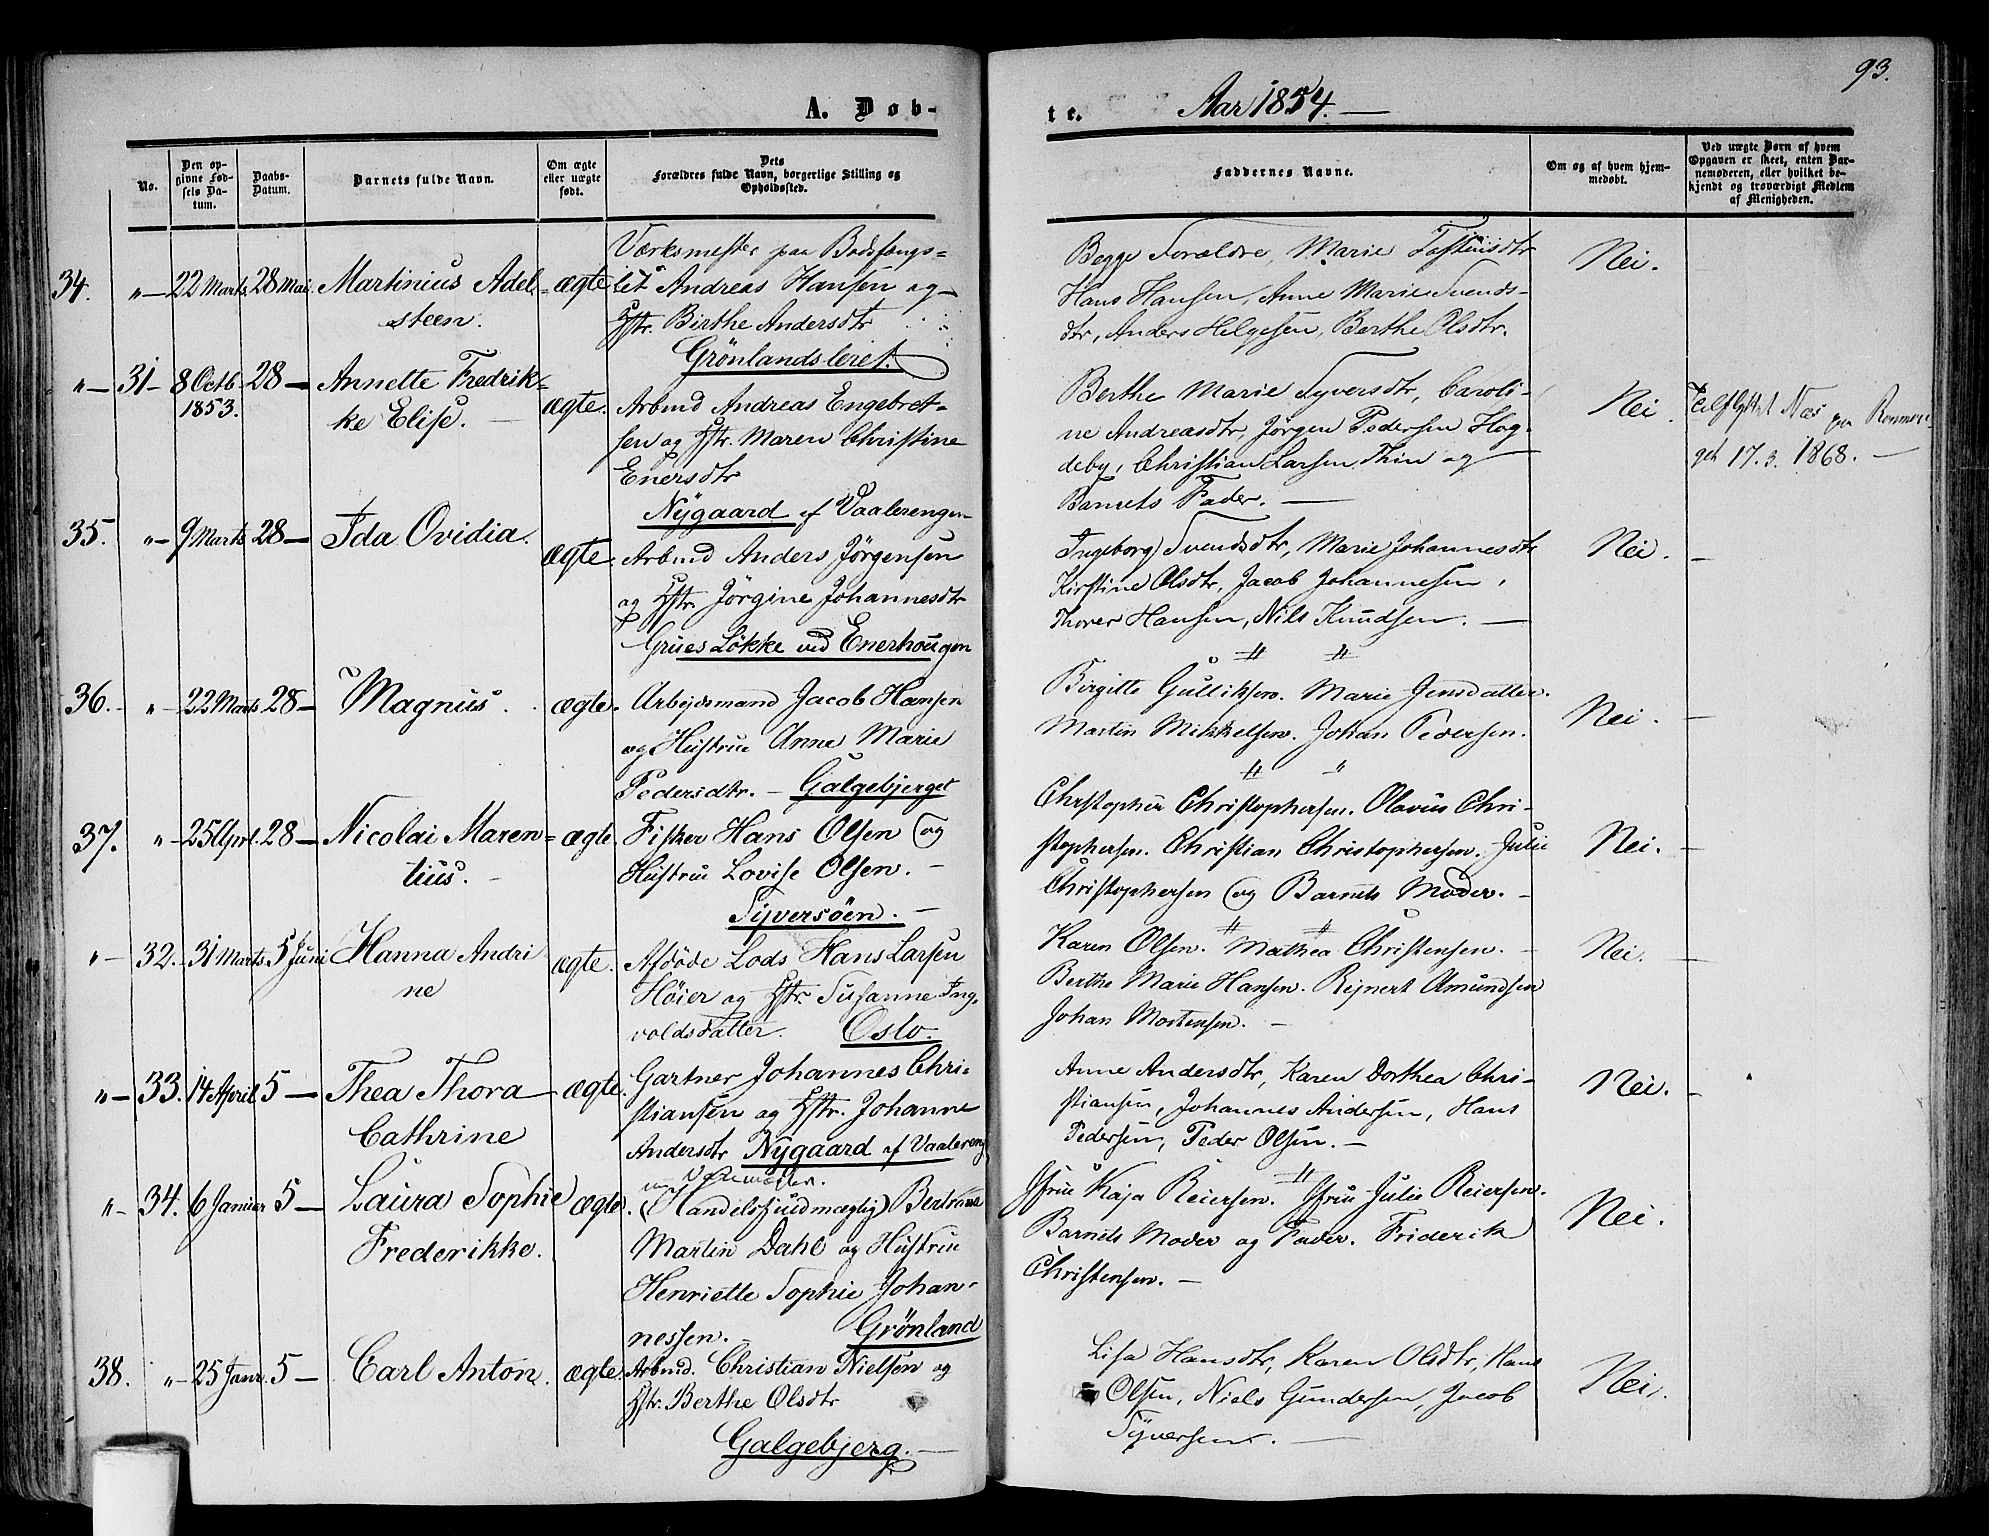 93.
A. Døb-
te. Aar 1854. —
No.
Den op-
givne Fød-
sels Da-
tum.
Daabs-
Datum.
Barnets fulde Navn.
Om ægte
eller uægte
født.
Dets
Forældres fulde Navn, borgerlige Stilling og
Opholdssted.
Faddernes Navne.
Om og af hvem hjem-
medøbt.
Ved uægte Børn af hvem
Opgaven er skeet, enten Bar-
nemoderen, eller hvilket be-
kjendt og troværdigt Medlem
af Menigheden.
34. "— 22 Marts 28 Mai. Martinius Adel=
steen.
ægte
Værksmester paa Bodsfængs=
let Andreas Hansen og
Hstr. Birthe Andersdtr
Grönlandsleret.
Begge Forældre, Marie Tostensdtr
Hans Hansen, Anne Marie Svends-
dtr, Anders Helgesen, Berthe Olsdtr.
Nei.
"— 31— 8 Octb. 28 — Annette Fredrik=
1853.
ke Elise. —
ægte.
Arbmd Andreas Engebret=
sen og Hstr. Maren Christine
Enersdtr
Nÿgaard af Vaalerengen
Berthe Marie Syversdtr, Caroli-
ne Andreasdtr, Jørgen Pedersen Hog-
deby, Christian Larsen Thin og
Barnets Fader. —
Nei.
Udflyttet Næs paa Romeri
get 17. 3. 1868. —
35. "— 9 Marts 28 — Ida Ovidia.
ægte.
Arbmd Anders Jörgensen
og Hstr. Jörgine Johannesdtr
Grües Lökke ved Enerhougen
Ingeborg Svendsdtr, Marie Johannesdtr
Kirstine Olsdtr, Jacob Johannesen,
Thorer Hansen, Nils Knudsen. —
Nei. —
36. "— 22 Marts 28 — Magnus.
ægte.
Arbejdsmand Jacob Hansen
og Hustrue Anne Marie
Pedersdtr. — Galgebjerget
Birgitte Gulliksen. Marie Jensdatter.
Martin Mikkelsen. Johan Pedersen.
Nei. —
37. "— 25 Aprl. 28 — Nicolai Maren=
tius. —
ægte.
Fisker Hans Olsen og
Hustrue Lovise Olsen. —
Syversöen. —
Christopher Christophersen. Olavus Chri-
stophersen. Christian Christophersen. Julie
Christophersen og Barnets Moder. —
Nei. —
"— 32. 31 Marts 5 Juni Hanna Andri
ne
ægte.
Afdøde Lods Hans Larsen
Höier og Hstr. Susanne Ing-
voldsdatter. Oslo.
Karen Olsen. Mathea Christensen. —
Berthe Marie Hansen. Rejnert Amundsen
Johan Mortensen. —
Nei. —
"— 33. 14 April 5 — Thea Thora
Cathrine
ægte.
Gartner Johannes Chri-
stiansen og Hstr. Johanne
Andersdtr Nÿgaard af Vaalereng
Anne Andersdtr, Karen Dorthea Chri-
stiansen, Johannes Andersen, Hans
Pedersen, Peder Olsen. —
Nei. —
"— 34. 6 Januar 5 — Laura Sophie
Frederikke.
ægte.
(Handelsfuldmægtig) Bertrand
Martin Dahl og Hustrue
Henriette Sophie Johan-
nessen. — Grönland
Jfru Kaja Reiersen. Jfru Julie Reiersen.
Barnets Moder og Fader. Friderik
Christensen. —
Nei.
38. "— 25 Janr. 5 — Carl Anton.
ægte.
Arbmd. Christian Nielsen og
Hstr. Berthe Olsdtr
Galgebjerg. —
Lisa Hansdtr, Karen Olsdtr, Hans
Olsen, Niels Gundersen, Jacob
Syversen. —
Nei.